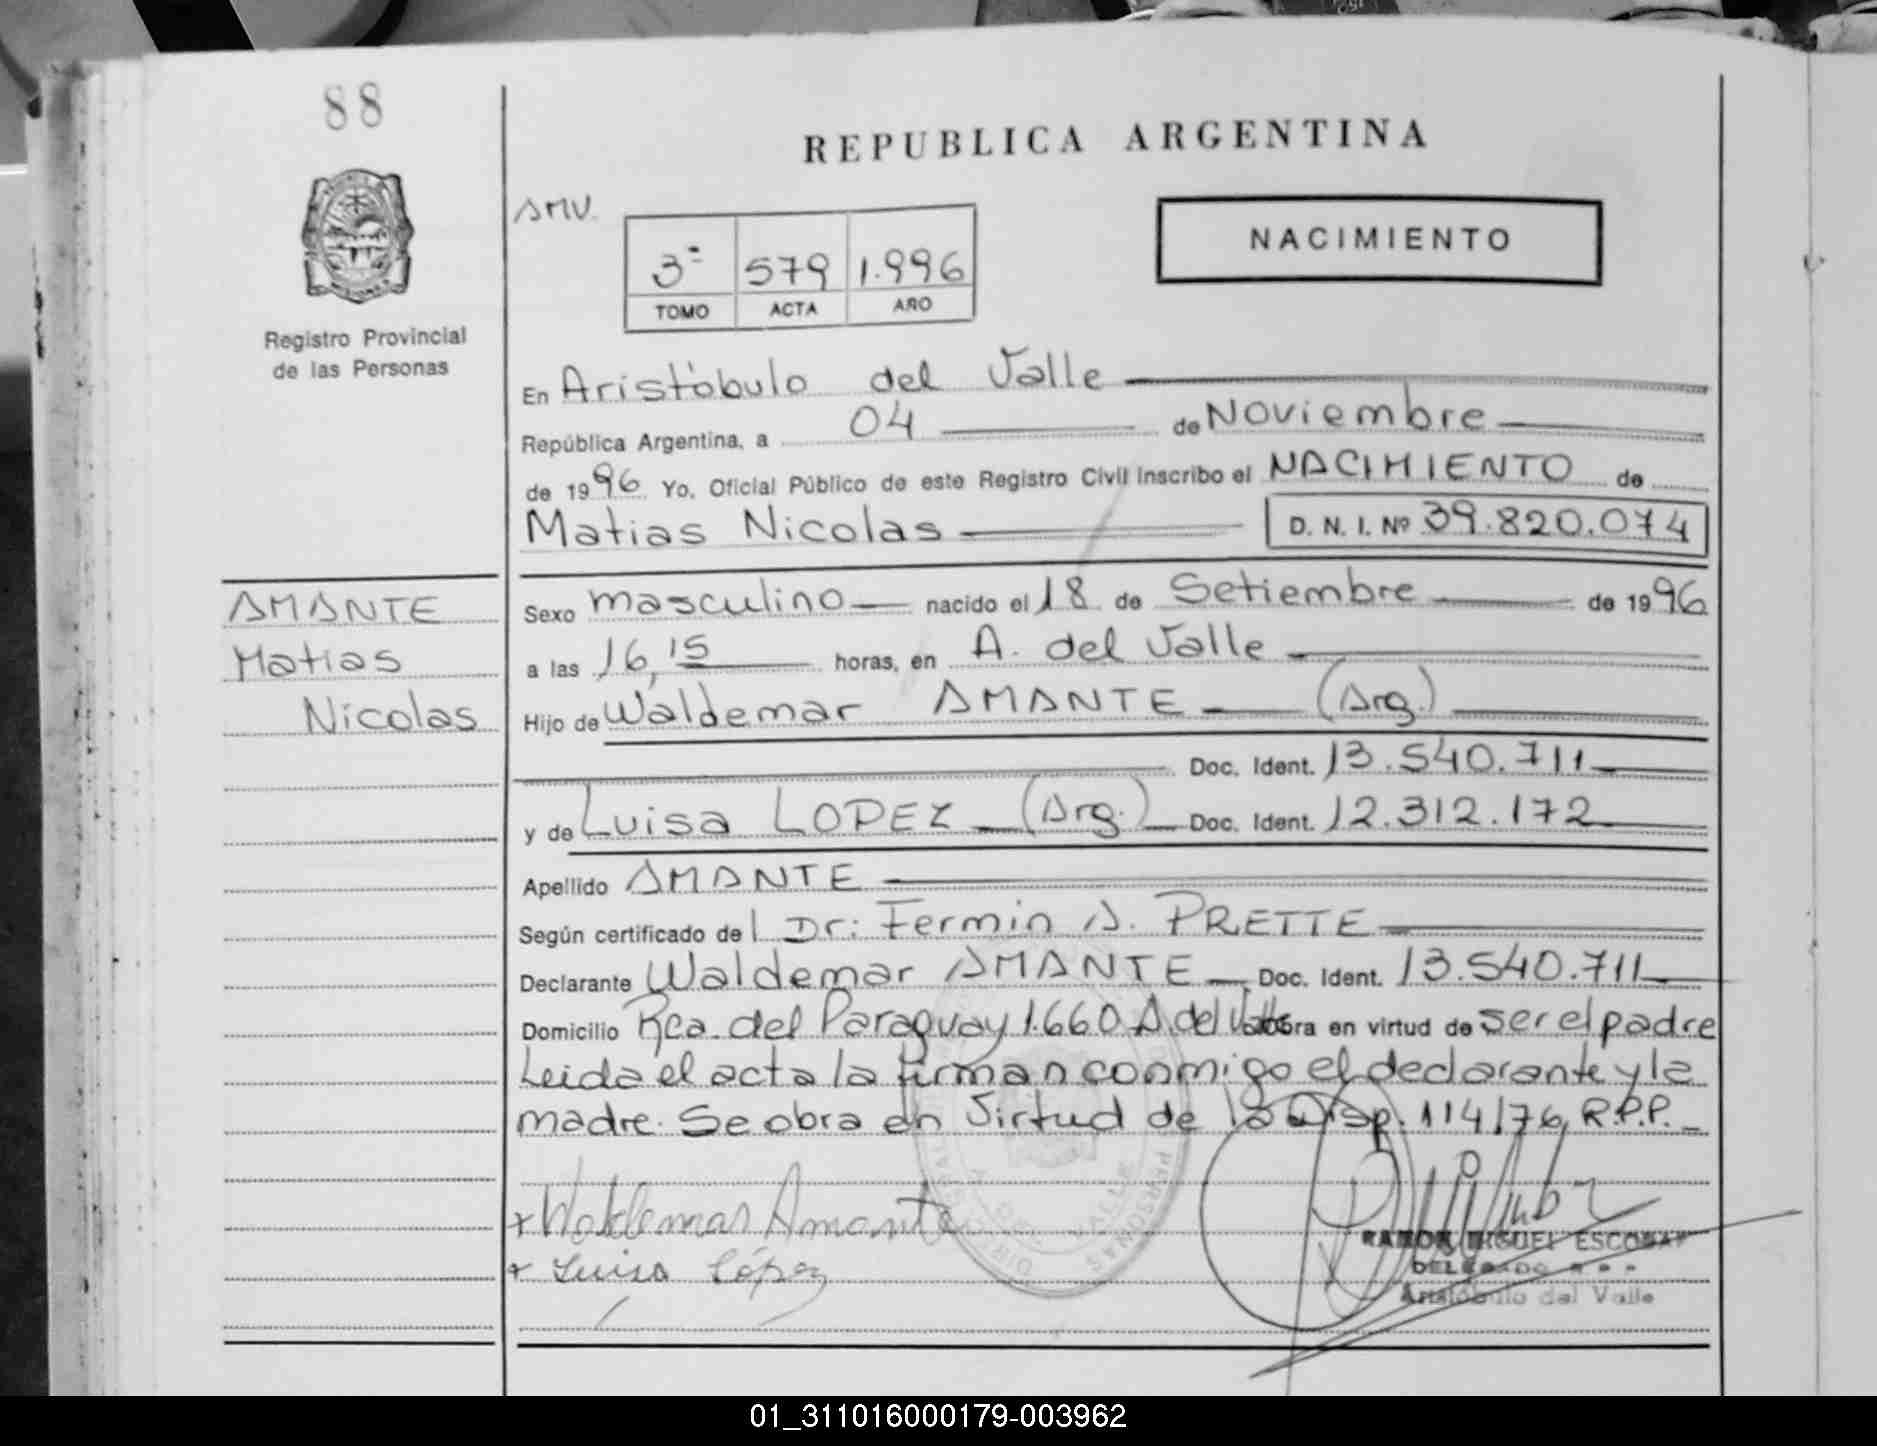 88
REPUBLICA ARGENTINA
Registro Provincial
de las Personas
AMV.
3ª 579 1.996
TOMO ACTA AÑO
NACIMIENTO
En Aristóbulo del Valle
República Argentina, a 04 de Noviembre
de 1996 Yo, Oficial Público de este Registro Civil inscribo el NACIMIENTO de
Matias Nicolas D. N. I. Nº 39.820.074
AMANTE
Matias
Nicolas
Sexo masculino nacido el 18 de Setiembre de 1996
a las 16,15 horas, en A. del Valle
Hijo de Waldemar AMANTE (Arg.)
Doc. Ident. 13.540.711
y de Luisa LOPEZ (Arg.) Doc. Ident. 12.312.172
Apellido AMANTE
Según certificado del Dr: Fermin A. PRETTE
Declarante Waldemar AMANTE Doc. Ident. 13.540.711
Domicilio Rca. del Paraguay 1.660 A. del Valle obra en virtud de ser el padre
Leida el acta la firman conmigo el declarante y la
madre. Se obra en Virtud de la Disp. 114/76, R.P.P.
Waldemar Amante
Luisa López
RAMON MIGUEL ESCOBAR
DELEGADO
Aristóbulo del Valle
PERSONAS
VALLE
01_311016000179-003962